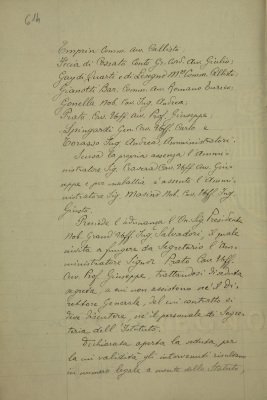 614
Emprin Comm. Avv. Callisto
Pocia di Cossato Conte Gr. Cord. Avv. Giulio;
Gay di Quarti e di Lesegno M.se Comm. Alberto;
Gianotti Bar. Comm. Avv. Romano Enrico;
Gonella Nob. Cav. Ing. Andrea;
Prato Cav. Uff. Avv. Prof. Giuseppe;
Springardi Gen. Cav. Uff. Carlo e
Torasso Ing. Andrea, Amministratori.
Scusa la propria assenza l'Ammi=
nistratore Sig. Cav. Uff. Avv. Giu=
seppe e per malattia è assente l'Ammi=
nistratore Sig. Marsino Nob. Cav. Uff. Ing.
Presiede l'adunanza l'On. Sig. Presidente
Nob. Grand. Uff. Ing. Salvadori, il quale
invita a fungere da Segretario l'Am=
ministratore Signor Prato Cav. Uff.
Avv. Prof. Giuseppe, trattandosi di seduta
segreta, a cui non assistono nè il Di=
rettore Generale, del cui contratto si
deve discutere, nè il personale di Segre=
teria dell'Istituto.
Dichiarata aperta la seduta per
la cui validità gli intervenuti risultano
in numero legale a mente dello Statuto,